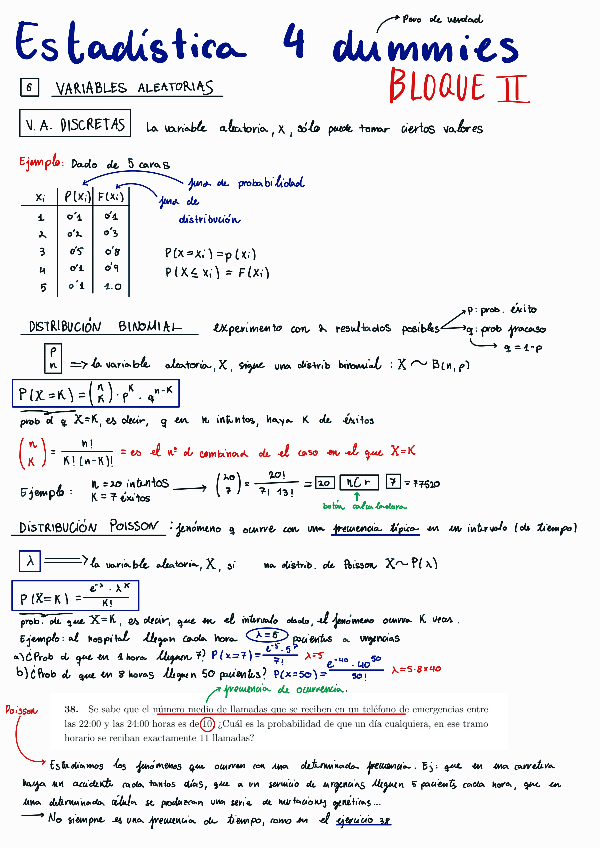 → Pero de verdad
Estadística 4 dummies
BLOQUE II
6 VARIABLES ALEATORIAS
V. A. DISCRETAS La variable aleatoria, X, sólo puede tomar ciertos valores
Ejemplo: Dado de 5 caras
func de probabilidad
xi P(xi) F(xi) func de
distribución
1 0'1 0'1
2 0'2 0'3
3 0'5 0'8 P(X=xi)=p(xi)
4 0'1 0'9 P(X≤xi) = F(xi)
5 0'1 1.0
DISTRIBUCIÓN BINOMIAL experimento con 2 resultados posibles → p: prob. éxito
→ q: prob fracaso
→ q = 1-p
p
n ⇒ la variable aleatoria, X, sigue una distrib binomial : X ~ B(n,p)
P(X=K) = (n K) · p^K · q^(n-K)
prob d q X=K, es decir, q en n intentos, haya K de éxitos
(n K) = n! / K! (n-K)! = es el nº d combinac de el caso en el que X=K
Ejemplo : n = 20 intentos K = 7 éxitos → (20 7) = 20! / 7! 13! = 20 nCr 7 = 77520
botón calculadora
DISTRIBUCIÓN POISSON : fenómeno q ocurre con una frecuencia típica en un intervalo (de tiempo)
λ ⇒ la variable aleatoria, X, si na distrib. de Poisson X~P(λ)
P(X=K) = e^-λ · λ^K / K!
prob. de que X=K, es decir, que en el intervalo dado, el fenómeno ocurra K veces.
Ejemplo: al hospital llegan cada hora λ=5 pacientes a urgencias
a) ¿Prob d que en 1 hora lleguen 7? P(x=7) = e^-5 · 5^7 / 7! λ=5
b) ¿Prob d que en 8 horas lleguen 50 pacientes? P(x=50) = e^-40 · 40^50 / 50! λ=5·8=40
frecuencia de ocurrencia.
Poisson
38. Se sabe que el número medio de llamadas que se reciben en un teléfono de emergencias entre
las 22:00 y las 24:00 horas es de 10. ¿Cuál es la probabilidad de que un día cualquiera, en ese tramo
horario se reciban exactamente 11 llamadas?
→ Estudiamos los fenómenos que ocurren con una determinada frecuencia. Ej: que en una carretera
haya un accidente cada tantos días, que a un servicio de urgencias lleguen 5 pacients cada hora, que en
una determinada célula se produzcan una serie de mutaciones genéticas...
→ No siempre es una frecuencia de tiempo, como en el ejercicio 38